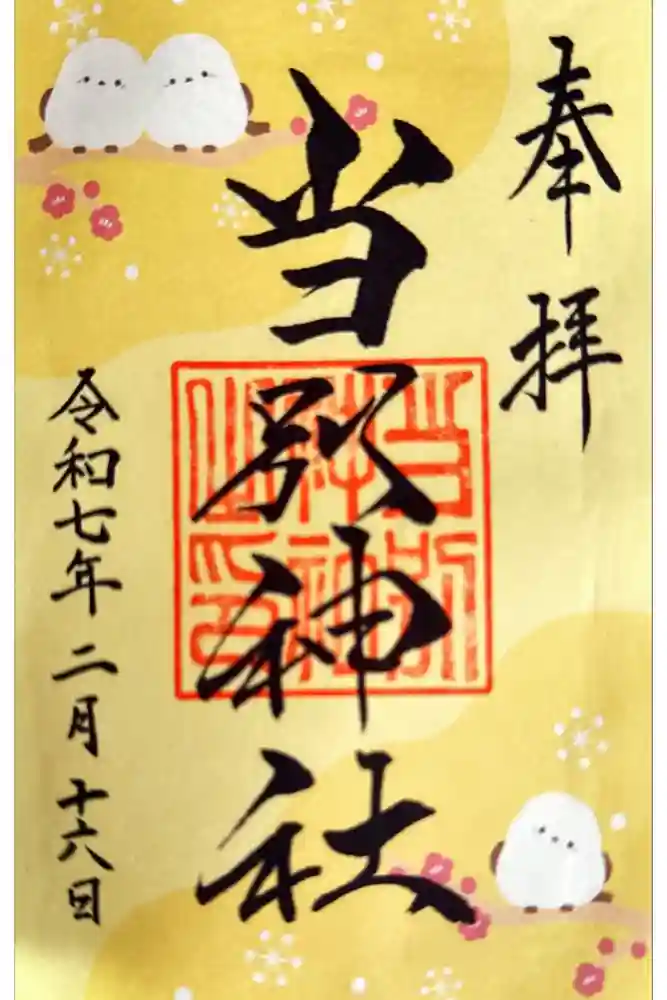 奉拝
当別神社
当別
神社
之印
令和七年二月十六日